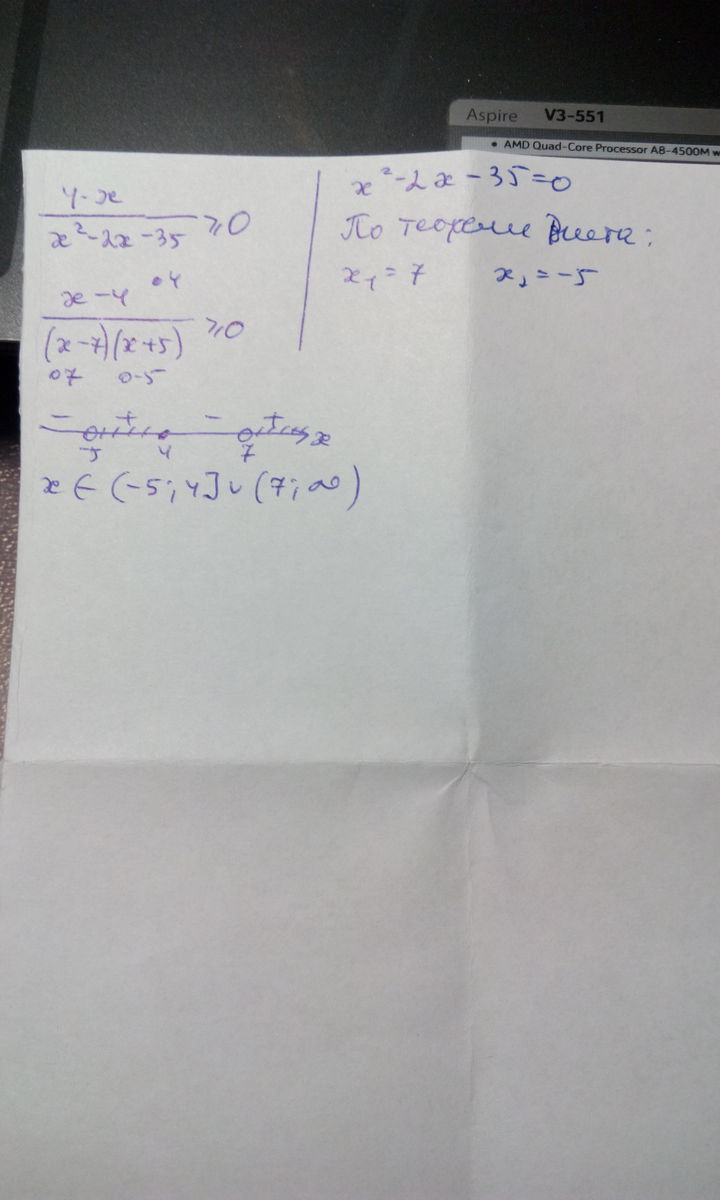 Aspire V3-551
• AMD Quad-Core Processor A8-4500M w
4-x
x²-2x-35 ≥0
x-4 •4
(x-7)(x+5) ≥0
o7 o-5
- + - +
-5 4 7 x
x ∈ (-5; 4] ∪ (7; ∞)
x²-2x-35=0
По теореме Виета:
x₁=7 x₂=-5